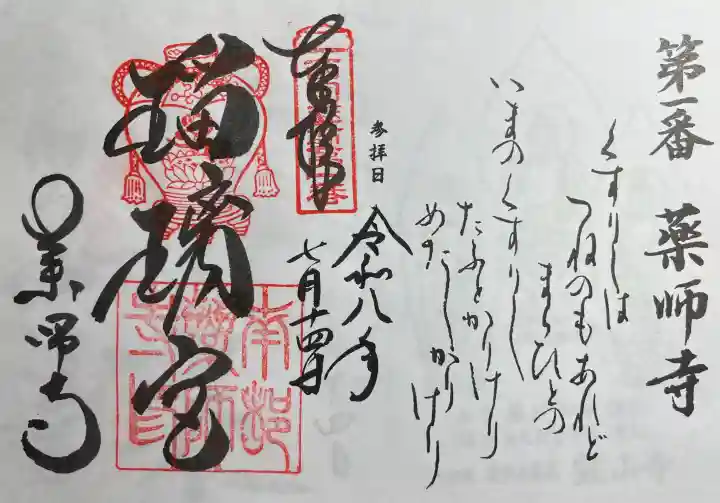 第一番　薬師寺
くすりしは
つねのもあれど
まらひとの
いまのくすりし
たふとかりけり
めだしかりけり
参拝日
令和八年
七月十四日
奉拝
瑠璃宮
薬師寺
南都薬師寺印